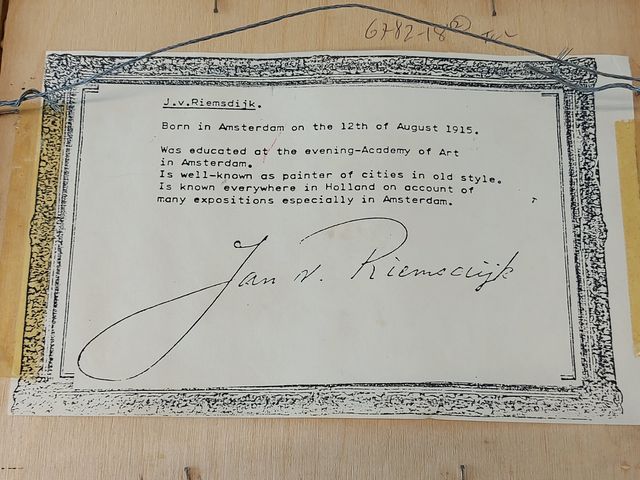 6782-18
J.v.Riemsdijk.
Born in Amsterdam on the 12th of August 1915.
Was educated at the evening-Academy of Art
in Amsterdam.
Is well-known as painter of cities in old style.
Is known everywhere in Holland on account of
many expositions especially in Amsterdam.
Jan v. Riemsdijk